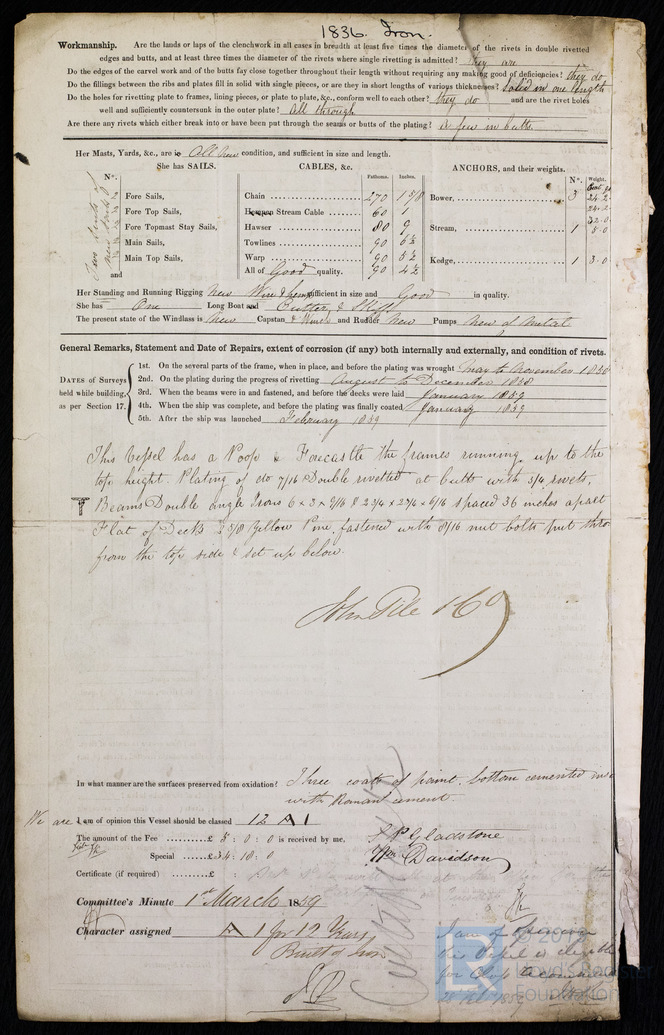 1836. Iron.
Workmanship. Are the lands or laps of the clenchwork in all cases in breadth at least five times the diameter of the rivets in double rivetted
edges and butts, and at least three times the diameter of the rivets where single rivetting is admitted? They are
Do the edges of the carvel work and of the butts fay close together throughout their length without requiring any making good of deficiencies? they do
Do the fillings between the ribs and plates fill in solid with single pieces, or are they in short lengths of various thicknesses? Solid in one length
Do the holes for rivetting plate to frames, lining pieces, or plate to plate, &c., conform well to each other? they do and are the rivet holes
well and sufficiently countersunk in the outer plate? all through
Are there any rivets which either break into or have been put through the seams or butts of the plating? a few in butts.
Her Masts, Yards, &c., are in All New condition, and sufficient in size and length.
She has SAILS. CABLES, &c. ANCHORS, and their weights.
N°. Fathoms. Inches. N°. Weight.
Fore Sails, Chain 270 1 5/8 Bower, 3 24.2
Fore Top Sails, Hempen Stream Cable 60 1 24.2
Fore Topmast Stay Sails, Hawser 80 9 Stream, 1 5.0
Main Sails, Towlines 90 6½
Main Top Sails, Warp 90 5½ Kedge, 1 3.0
and All of Good quality. 90 4½
Two Suits of
Her Standing and Running Rigging New Wire & hemp sufficient in size and Good in quality.
She has One Long Boat and Cutter & Skiff
The present state of the Windlass is New Capstan & Winch and Rudder New Pumps New of Metal
General Remarks, Statement and Date of Repairs, extent of corrosion (if any) both internally and externally, and condition of rivets.
DATES of Surveys held while building, as per Section 17.
1st. On the several parts of the frame, when in place, and before the plating was wrought May to November 1858
2nd. On the plating during the progress of rivetting August to December 1858
3rd. When the beams were in and fastened, and before the decks were laid January 1859
4th. When the ship was complete, and before the plating was finally coated January 1859
5th. After the ship was launched February 1859
This Vessel has a Poop & Forecastle the frames running up to the
top height. Plating of do 7/16 Double rivetted at butts with 3/4 rivets,
Beams Double angle Irons 6 x 3 x 6/16 & 2 3/4 x 2 3/4 x 6/16 spaced 36 inches apart
Flat of Decks 3 5/8 Yellow Pine, fastened with 9/16 nut bolts put thro
from the top side & set up below.
John Pile & Co
In what manner are the surfaces preserved from oxidation? Three coats of paint. bottom cemented
with Roman cement.
We are I am of opinion this Vessel should be classed 12 A 1
The amount of the Fee £ 5 : 0 : 0 is received by me,
J P Gladstone
Special £34 : 10 : 0
Wm Davidson
Certificate (if required) £ :
Committee's Minute 1st March 1859
Character assigned A 1 for 12 Years
Built of Iron
I am of opinion
the Vessel is eligible
for Class
LR © 20
Lloyd's Register
Foundation